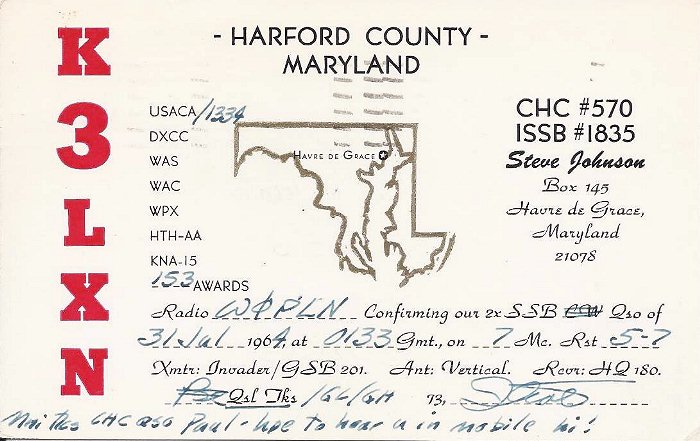 K3LXN
- HARFORD COUNTY -
MARYLAND
USACA/1334
DXCC
WAS
WAC
WPX
HTH-AA
KNA-15
153 AWARDS
HAVRE DE GRACE
CHC #570
ISSB #1835
Steve Johnson
Box 145
Havre de Grace,
Maryland
21078
Radio WØPLN Confirming our 2x SSB CW Qso of
31 Jul 1964, at 0133 Gmt., on 7 Mc. Rst 5-7
Xmtr: Invader/GSB 201. Ant: Vertical. Rcvr: HQ 180.
Pse Qsl Tks /GL/GH 73, Steve
Mni Tks CHC QSO Paul - hpe to hear u in mobile hi!